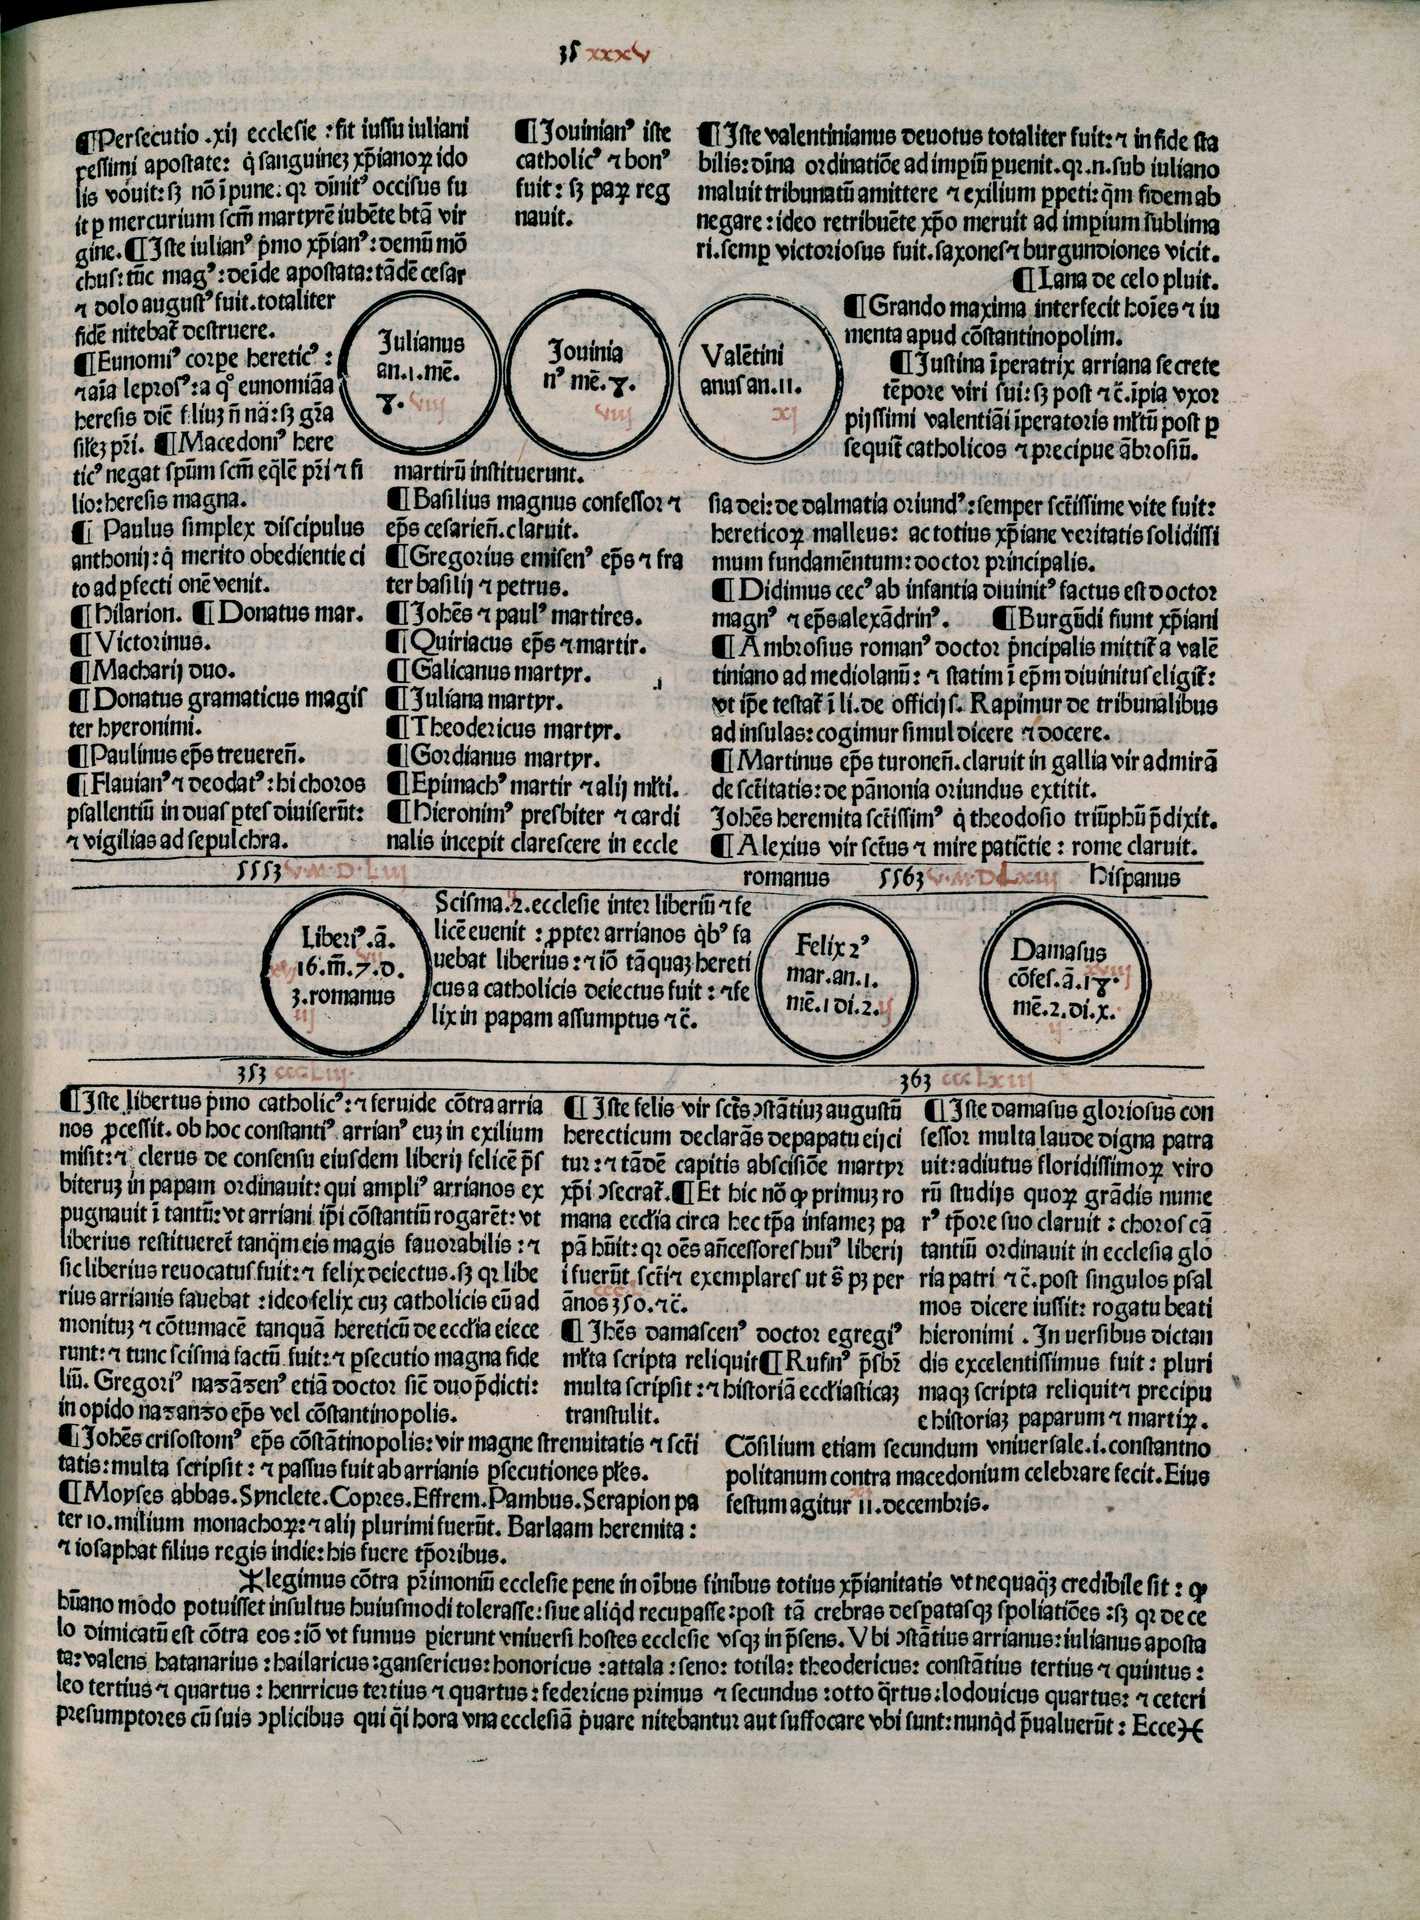 35 xxxv
¶Persecutio .xij ecclesie : fit iussu iuliani
pessimi apostate: q̇ sanguinez xp̄ianoꝝ ido
lis vouit: sꝫ nō īpune. qꝛ diuīitꝰ occisus fu
it ꝑ mercurium scm̄ martyrē iubēte btā vir
gine. ¶Iste iulianꝰ pͥmo xp̄ianꝰ: demū mō
chus: tūc magꝰ: deīde apostata: tādē cesar
⁊ dolo augustꝰ fuit. totaliter
fidē nitebat᷑ destruere.
¶Eunomiꝰ corpe hereticꝰ :
⁊ aīa leprosꝰ: a qͦ eunomiāa
heresis diē filiuꝫ n̄ nā: sꝫ gr̄a
silez pr̄i. ¶Macedoniꝰ here
ticꝰ negat spūm scm̄ eq̄lē pr̄i ⁊ fi
lio: heresis magna.
¶ Paulus simplex discipulus
anthonij: q̇ merito obedientie ci
to ad ꝑfecti onē venit.
¶Hilarion. ¶Donatus mar.
¶Victorinus.
¶Macharij duo.
¶Donatus gramaticus magis
ter hyeronimi.
¶Paulinus ep̄s treueren̄.
¶Flauianꝰ ⁊ deodatꝰ: hi choros
psallentiū in duas ꝑtes diuiserūt:
⁊ vigilias ad sepulchra.
¶Iouinianꝰ iste
catholicꝰ ⁊ bonꝰ
fuit: sꝫ paꝝ reg
nauit.
¶Iste valentinianus deuotus totaliter fuit: ⁊ in fide sta
bilis: diīna ordinatiōe ad imꝑiū ꝑuenit. qꝛ.n. sub iuliano
maluit tribunatū amittere ⁊ exilium ꝑpeti: qm̄ fidem ab
negare: ideo retribuēte xp̄o meruit ad imꝑium sublima
ri. semꝑ victoriosus fuit. saxones ⁊ burgundiones vicit.
¶Lana de celo pluit.
¶Grando maxima interfecit hoīes ⁊ iu
menta apud cōstantinopolim.
¶Iustina īperatrix arriana secrete
tēpore viri sui: sꝫ post ⁊c̄. īpia vxor
pijssimi valentiāi īperatoris ml̄tū post ꝑ
sequit᷑ catholicos ⁊ precipue ābrosiū.
Iulianus
an.1.mē.
8. viij
Iouinia
nꝰ mē.8.
viij
Valētini
anus an.11.
xj
martirū instituerunt.
¶Basilius magnus confessor ⁊
ep̄s cesarien̄. claruit.
¶Gregorius emisenꝰ ep̄s ⁊ fra
ter basilij ⁊ petrus.
¶Johēs ⁊ paulꝰ martires.
¶Quiriacus ep̄s ⁊ martir.
¶Galicanus martyr.
¶Juliana martyr.
¶Theodericus martyr.
¶Gordianus martyr.
¶Epimachꝰ martir ⁊ alij ml̄ti.
¶Hieronimꝰ presbiter ⁊ cardi
nalis incepit clarescere in eccle
sia dei: de dalmatia oriundꝰ: semper sctīssime vite fuit:
hereticoꝝ malleus: ac totius xp̄iane veritatis solidissi
mum fundamētum: doctor principalis.
¶Didimus cecꝰ ab infantia diuinitꝰ factus est doctor
magnꝰ ⁊ ep̄s alexādrinꝰ. ¶Burgūdi fiunt xp̄iani
¶Ambrosius romanꝰ doctor pͥncipalis mittit᷑ a valē
tiniano ad mediolanū: ⁊ statim ī ep̄m diuinitus eligit᷑:
vt ip̄e testat᷑ ī li. de officijs. Rapimur de tribunalibus
ad insulas: cogimur simul dicere ⁊ docere.
¶Martinus ep̄s turonen̄. claruit in gallia vir admirā
de sctītatis: de pānonia oriundus extitit.
Johēs heremita sctīssimꝰ q̇ theodosio triūphū p̄dixit.
¶Alexius vir sctūs ⁊ mire patiētie : rome claruit.
5553 V.M.D.Liij romanus 5563 V.M.D.Lxiij Hispanus
Liberiꝰ.ā.
16.m̄.7.d.
3.romanus
iij
Scisma.2.ecclesie inter liberiū ⁊ fe
licē euenit : ꝓpter arrianos q̇bꝰ fa
uebat liberius: ⁊ iō tāquaꝫ hereti
cus a catholicis deiectus fuit: ⁊ fe
lix in papam assumptus ⁊c̄.
Felix 2ꝰ
mar.an.1.
mē.1 di.2. ij
Damasus
cōfes.ā.18. xviij
mē.2.di.x.
ij
353 cccLiij. 363 cccLxiij
¶Iste libertus pͥmo catholicꝰ: ⁊ feruide cōtra arria
nos ꝓcessit. ob hoc constantiꝰ arrianꝰ euꝫ in exilium
misit: ⁊ clerus de consensu eiusdem liberij felicē p̄s
biteruꝫ in papam ordinauit: qui ampliꝰ arrianos ex
pugnauit ī tantū: vt arriani ip̄i cōstantiū rogarēt: vt
liberius restitueret᷑ tanq̄m eis magis fauorabilis : ⁊
sic liberius reuocatus fuit: ⁊ felix deiectus. sꝫ qꝛ libe
rius arrianis fauebat : ideo felix cuꝫ catholicis eū ad
monituꝫ ⁊ cōtumacē tanquā hereticū de ecclīa eiece
runt: ⁊ tunc scisma factū fuit: ⁊ ꝑsecutio magna fide
liū. Gregoriꝰ nazāzenꝰ etiā doctor sic̄ duo p̄dicti:
in opido nazanzo ep̄s vel cōstantinopolis.
¶Johēs crisostomꝰ ep̄s cōstātinopolis: vir magne strenuitatis ⁊ scti
tatis: multa scripsit : ⁊ passus fuit ab arrianis ꝑsecutiones pl̄es.
¶Moyses abbas. Synclete. Copres. Effrem. Pambus. Serapion pa
ter 10. milium monachoꝝ: ⁊ alij plurimi fuerūt. Barlaam heremita :
⁊ iosaphat filius regis indie: his fuere tp̄oribus.
¶Iste felis vir sctūs ꝯstātiuꝫ augustū
herecticum declarās de papatu eijci
tur: ⁊ tādē capitis abscisiōe martyr
xp̄i ꝯsecrat᷑. ¶Et hic nō ꝙ primuꝫ ro
mana ecclīa circa hec tp̄a infameꝫ pa
pā hūit: qꝛ oēs añcessores huiꝰ liberij
i fuerūt scti ⁊ exemplares ut s̄ pꝫ per
ānos 350. ⁊c̄.
¶Jhēs damascenꝰ doctor egregiꝰ
ml̄ta scripta reliquit ¶Rufinꝰ p̄sbr̄
multa scripsit : ⁊ historiā ecclīasticaꝫ
transtulit.
¶Iste damasus gloriosus con
fessor multa laude digna patra
uit: adiutus floridissimoꝝ viro
rū studijs quoꝝ grādis nume
rꝰ tp̄ore suo claruit : choros cā
tantiū ordinauit in ecclesia glo
ria patri ⁊ c̄. post singulos psal
mos dicere iussit: rogatu beati
hieronimi . In uersibus dictan
dis excelentissimus fuit : pluri
maqꝫ scripta reliquit ⁊ precipu
e historiaꝫ paparum ⁊ martiꝝ.
Cōsilium etiam secundum vniuersale.i.constantno
politanum contra macedonium celebrare fecit. Eius
festum agitur 11. decembris.
legimus cōtra pr̄imoniū ecclesie pene in oībus finibus totius xp̄ianitatis vt nequaq̄ꝫ credibile sit : ꝙ
hūano modo potuisset insultus huiusmodi tolerasse: siue aliq̇d recupasse: post tā crebras desꝑatasqꝫ spoliatiōes : sꝫ qꝛ de ce
lo dimicatū est cōtra eos : iō vt fumus ꝑierunt vniuersi hostes ecclesie vsqꝫ in p̄sens. Vbi ꝯstātius arrianus: iulianus aposta
ta: valens batanarius : hailaricus : gansericus: honoricus : attala : seno: totila: theodericus: constātius tertius ⁊ quintus :
leo tertius ⁊ quartus : henrricus tertius ⁊ quartus : federicus primus ⁊ secundus : otto q̄rtus : lodouicus quartus: ⁊ ceteri
presumptores cū suis ꝯplicibus qui q̄i hora vna ecclesiā pͥuare nitebantur aut suffocare vbi sunt: nunq̇d p̄ualuerūt : Ecce